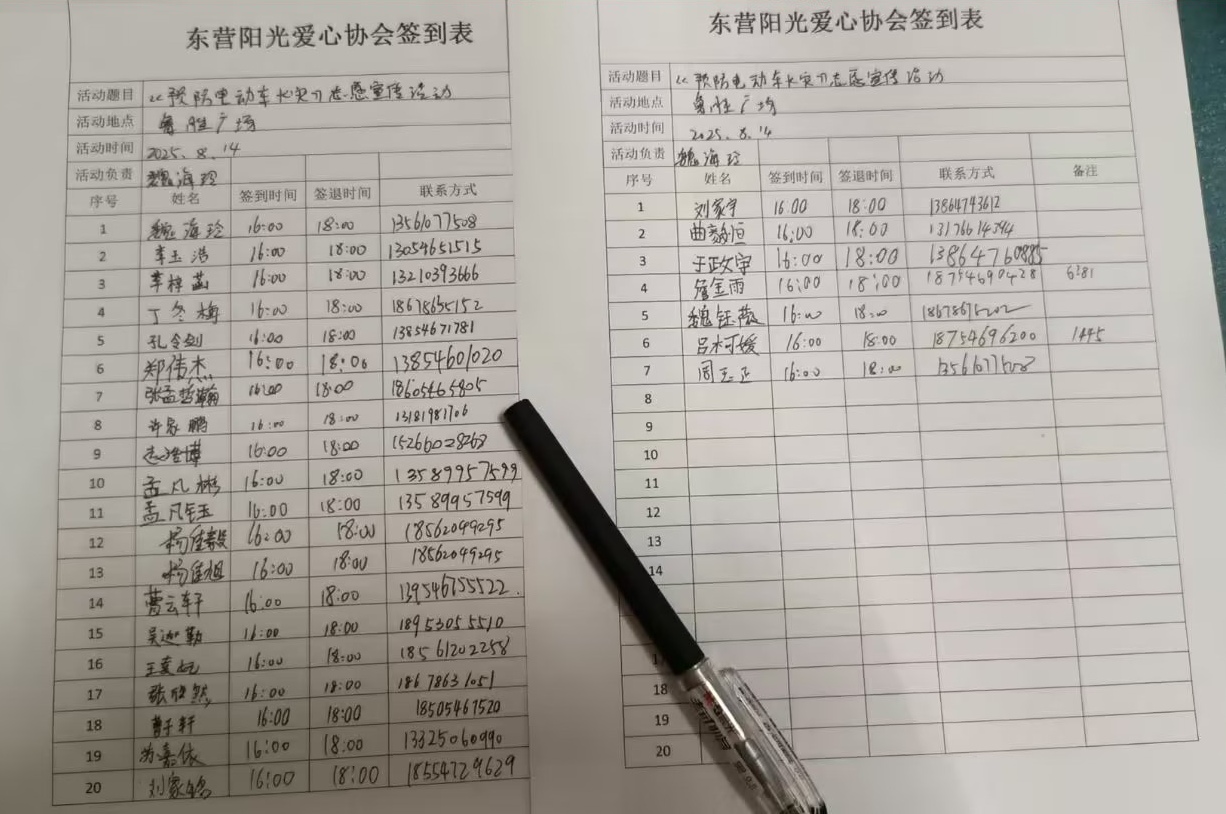 东营阳光爱心协会签到表
活动题目 《预防电动车火灾》志愿宣传活动
活动地点 鲁胜广场
活动时间 2025.8.14
活动负责 魏海玲
序号 姓名 签到时间 签退时间 联系方式
1 魏海玲 16:00 18:00 13561077508
2 李玉浩 16:00 18:00 13054651515
3 李梓菡 16:00 18:00 13210393666
4 丁冬梅 16:00 18:00 18678655152
5 孔令剑 16:00 18:00 13854671781
6 郑伟杰 16:00 18:00 13854601020
7 张孟哲瀚 16:00 18:00 18605465805
8 许家鹏 16:00 18:00 13181981706
9 16:00 18:00 15266028268
10 孟凡彬 16:00 18:00 13589957599
11 孟凡钰 16:00 18:00 13589957599
12 杨佳毅 16:00 18:00 18562049295
13 杨佳旭 16:00 18:00 18562049295
14 曹云轩 16:00 18:00 13954675522.
15 吴迦勤 16:00 18:00 18953055510
16 16:00 18:00 18561202258
17 张欣然 16:00 18:00 18678631051
18 曹于轩 16:00 18:00 18505467520
19 16:00 18:00 13325060990
20 刘家铭 16:00 18:00 18554729629
东营阳光爱心协会签到表
活动题目 《预防电动车火灾》志愿宣传活动
活动地点 鲁胜广场
活动时间 2025.8.14
活动负责 魏海玲
序号 姓名 签到时间 签退时间 联系方式 备注
1 刘家宇 16:00 18:00 13864743612
2 曲毅恒 16:00 18:00 13176614394
3 于政宇 16:00 18:00
4 詹金雨 16:00 18:00 18754690428 6281
5 魏钰薇 16:00 18:00 18678675202
6 吕柯媛 16:00 18:00 18754696200 1445
7 周玉正 16:00 18:00 13561077508
8
9
10
11
12
13
14
18
19
20